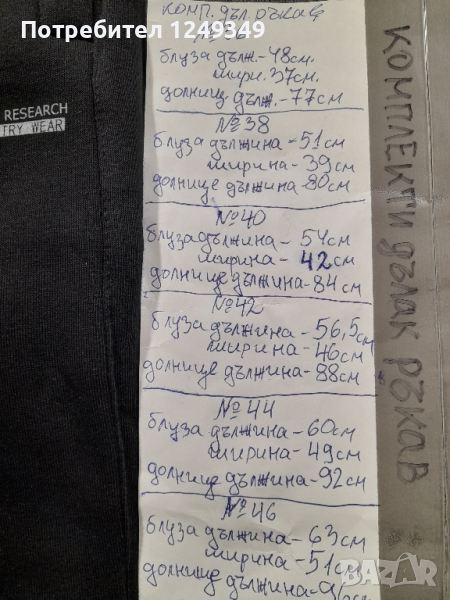 Потребител 1249349
КОМП. дъл. ръкав
блуза дълж.-48см.
шири. 37см.
долнище дълж.-77см
№38
блуза дължина-51см
ширина-39см
долнище дължина-80см
№40
блуза дължина-54см
ширина-42см
долнище дължина-84см
№42
блуза дължина-56,5см
ширина-46см
долнище дължина-88см
№44
блуза дължина-60см
ширина-49см
долнище дължина-92см
№46
блуза дължина-63см
ширина-51см
долнище дължина-
RESEARCH
TRY WEAR
КОМПЛЕКТИ дълаk РЪКАВ
BAZAR